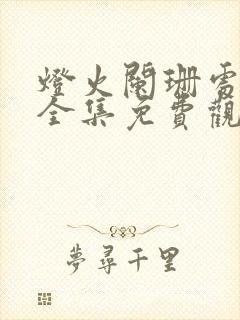 燈火闌珊處
全集免費觀
夢尋千里